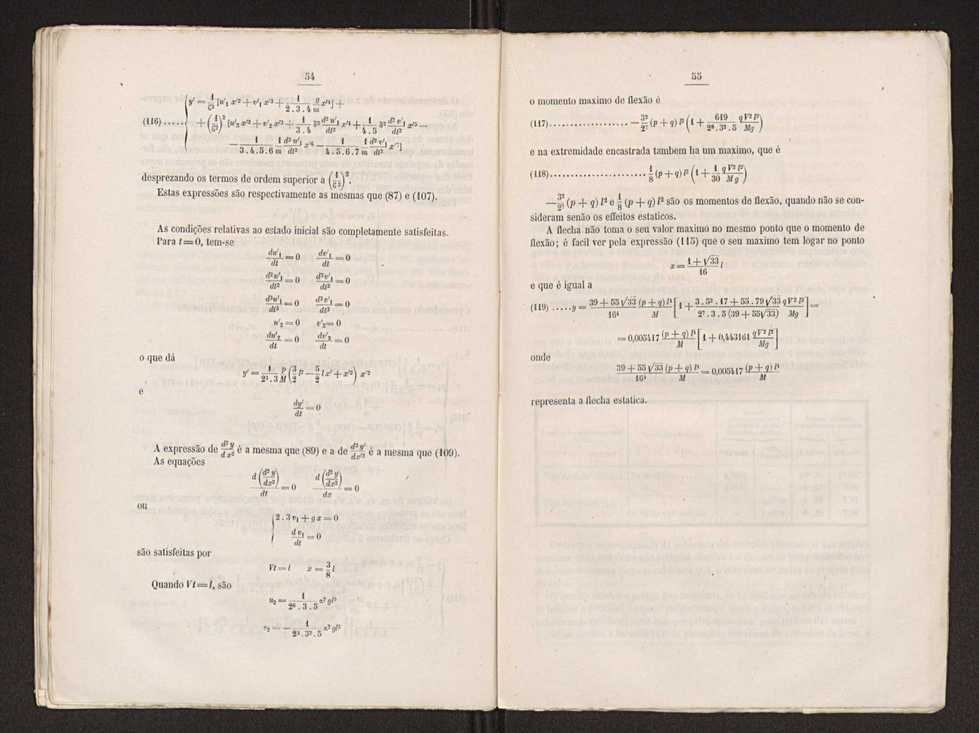 54
(116) ..... { y' = 1/ς² [u'₁ x'² + v'₁ x'³ + 1/(2.3.4) g/m x'⁴] +
+ (1/ς²)² [u'₂ x'² + v'₂ x'³ + 1/(3.4) 3² d²u'₁/dt² x'⁴ + 1/(4.5) 3² d²v'₁/dt² x'⁵ —
— 1/(3.4.5.6) 1/m d²u'₁/dt² x'⁶ — 1/(4.5.6.7) 1/m d²v'₁/dt² x'⁷]
desprezando os termos de ordem superior a (1/ς²)².
Estas expressões são respectivamente as mesmas que (87) e (107).
As condições relativas ao estado inicial são completamente satisfeitas.
Para t = 0, tem-se
du'₁/dt = 0 dv'₁/dt = 0
d²u'₁/dt² = 0 d²v'₁/dt² = 0
d³u'₁/dt³ = 0 d³v'₁/dt³ = 0
u'₂ = 0 v'₂ = 0
du'₂/dt = 0 dv'₂/dt = 0
o que dá
y' = 1/(2³.3) p/M (3/2 l² — 5/2 l x' + x'²) x'²
e
dy'/dt = 0
A expressão de d²y/dx² é a mesma que (89) e a de d²y'/dx'² é a mesma que (109).
As equações
d(d²y/dx²)/dt = 0 d(d²y/dx²)/dx = 0
ou
{ 2.3 v₁ + g x = 0
dv₁/dt = 0
são satisfeitas por
Vt = l x = 3/8 l
Quando Vt = l, são
u₂ = 1/(2⁶.3.5) a² g l⁵
v₂ = — 1/(2⁵.3².5) a² g l³
55
o momento maximo de flexão é
(117) ................... — 3²/2⁷ (p + q) l² (1 + 619/(2⁸.3³.5) qV²l²/Mg)
e na extremidade encastrada tambem ha um maximo, que é
(118) ....................... 1/8 (p + q) l² (1 + 1/30 qV²l²/Mg)
— 3²/2⁷ (p + q) l² e 1/8 (p + q) l² são os momentos de flexão, quando não se con-
sideram senão os effeitos estaticos.
A flecha não toma o seu valor maximo no mesmo ponto que o momento de
flexão; é facil ver pela expressão (115) que o seu maximo tem logar no ponto
x = (1 + √33)/16 l
e que é igual a
(119) ..... y = (39 + 55√33)/16⁴ (p + q) l⁴/M [1 + (3.5³.17 + 55.79√33)/(2⁷.3.5 (39 + 55√33)) qV²l²/Mg] =
= 0,005417 (p + q) l⁴/M [1 + 0,443161 qV²l²/Mg]
onde
(39 + 55√33)/16⁴ (p + q) l⁴/M = 0,005417 (p + q) l⁴/M
representa a flecha estatica.